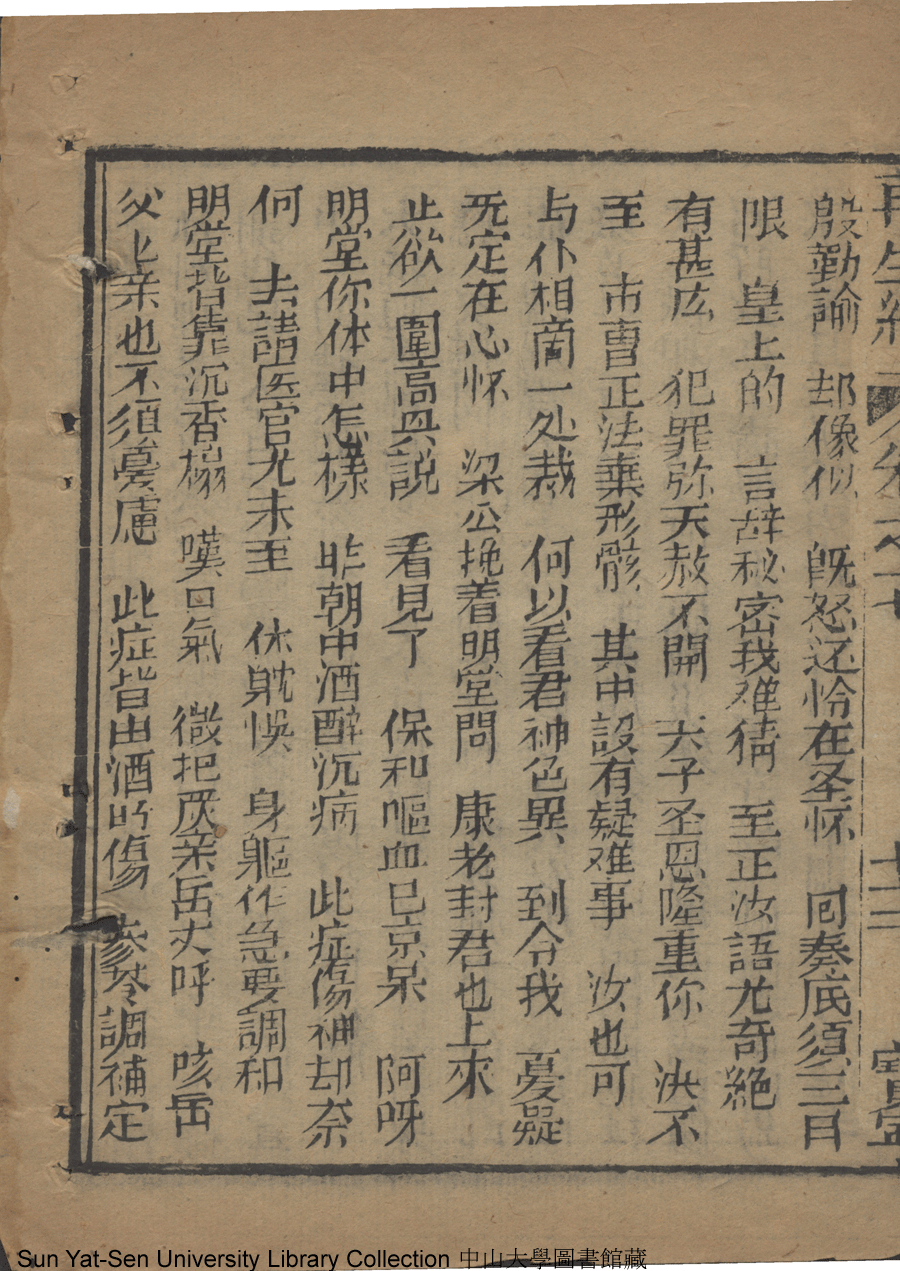 再生緣 卷之十 十二
殷勤諭 却像似 旣怒还怜在圣怀 回奏底須三日
限 皇上的 言辞秘密我难猜 至正汝語尤奇絶
有甚庅 犯罪弥天赦不開 天子圣恩隆重你 決不
至 市曹正法棄形骸 其中設有疑难事 汝也可
与仆相商一处裁 何以看君神色異 到令我 憂疑
无定在心怀 梁公挽着明堂問 康老封君也上來
止欲一圍高㒷説 看見了 保和嘔血已京呆 阿呀
明堂你体中怎樣 昨朝中酒醉沉病 此症傷神却奈
何 去請医官尤未至 休躭悮 身軀作急要調和
明堂背靠沉香榻 嘆口氣 微把厌亲岳丈呼 咳岳
父上亲也不須憂慮 此症皆由酒所傷 參苓調補定
Sun Yat-Sen University Library Collection 中山大學圖書館藏